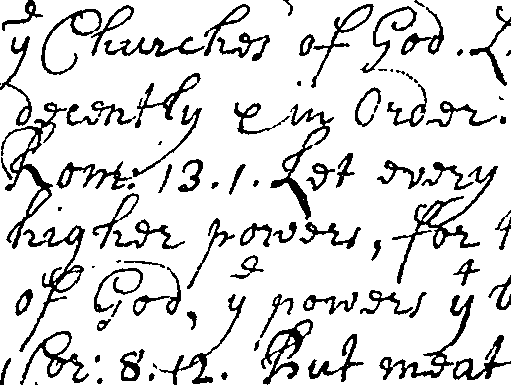 yᵉ Churches of God. L
decently & in Order:
Rom: 13.1. Let every
higher powers, for t
of God, yᵉ powers yᵗ b
1 Cor: 8:12. But meat